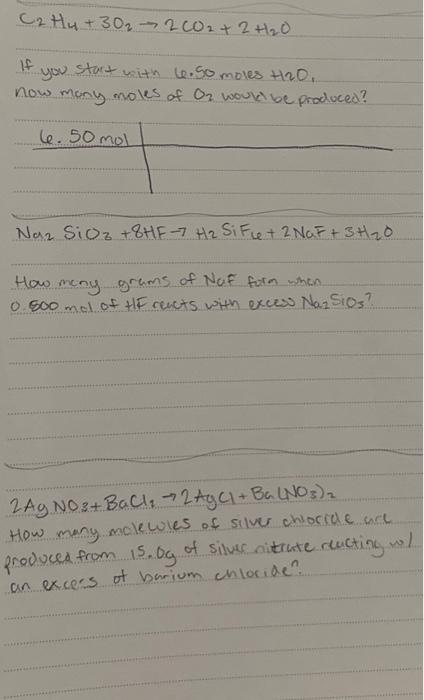 C2H4 + 3O2 → 2CO2 + 2H2O
If you start with 6.50 moles H2O,
how many moles of O2 would be produced?
6.50 mol
Na2SiO3 + 8HF → H2SiF6 + 2NaF + 3H2O
How many grams of NaF form when
0.500 mol of HF reacts with excess Na2SiO3?
2AgNO3 + BaCl2 → 2AgCl + Ba(NO3)2
How many molecules of silver chloride are
produced from 15.0g of silver nitrate reacting w/
an excess of barium chloride?